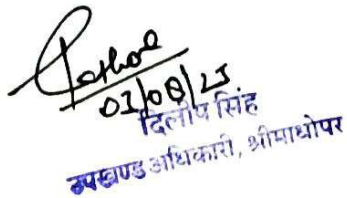 01/08/25
दिलीप सिंह
उपखण्ड अधिकारी, श्रीमाधोपर